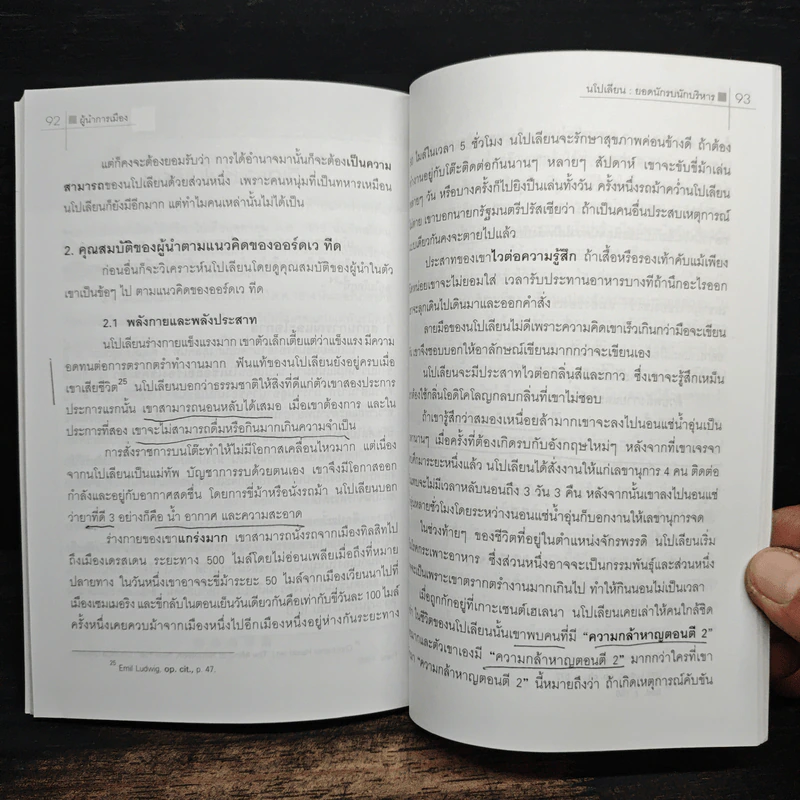 92 ผู้นำการเมือง
แต่ก็คงจะต้องยอมรับว่า การได้อำนาจมานั้นก็จะต้องเป็นความ
สามารถของนโปเลียนด้วยส่วนหนึ่ง เพราะคนหนุ่มที่เป็นทหารเหมือน
นโปเลียนก็ยังมีอีกมาก แต่ทำไมคนเหล่านั้นไม่ได้เป็น
2. คุณสมบัติของผู้นำตามแนวคิดของออร์ดเว ทีด
ก่อนอื่นก็จะวิเคราะห์นโปเลียนโดยดูคุณสมบัติของผู้นำในตัว
เขาเป็นข้อๆ ไป ตามแนวคิดของออร์ดเว ทีด
2.1 พลังกายและพลังประสาท
นโปเลียนร่างกายแข็งแรงมาก เขาตัวเล็กเตี้ยแต่ว่าแข็งแรง มีความ
อดทนต่อการตรากตรำทำงานมาก ฟันแท้ของนโปเลียนยังอยู่ครบเมื่อ
เขาเสียชีวิต25 นโปเลียนบอกว่าธรรมชาติให้สิ่งที่ดีแก่ตัวเขาสองประการ
ประการแรกนั้น เขาสามารถนอนหลับได้เสมอ เมื่อเขาต้องการ และใน
ประการที่สอง เขาจะไม่สามารถดื่มหรือกินมากเกินความจำเป็น
การสั่งราชการบนโต๊ะทำให้ไม่มีโอกาสเคลื่อนไหวมาก แต่เนื่อง
จากนโปเลียนเป็นแม่ทัพ บัญชาการรบด้วยตนเอง เขาจึงมีโอกาสออก
กำลังและอยู่กับอากาศสดชื่น โดยการขี่ม้าหรือนั่งรถม้า นโปเลียนบอก
ว่ายาที่ดี 3 อย่างก็คือ น้ำ อากาศ และความสะอาด
ร่างกายของเขาแกร่งมาก เขาสามารถนั่งรถจากเมืองทิลสิทไป
ถึงเมืองเดรสเดน ระยะทาง 500 ไมล์โดยไม่อ่อนเพลียเมื่อถึงที่หมาย
ปลายทาง ในวันหนึ่งเขาอาจจะขี่ม้าระยะ 50 ไมล์จากเมืองเวียนนาไปที่
เมืองเซมเมอริง และขี่กลับในตอนเย็นวันเดียวกันคือเท่ากับขี่วันละ 100 ไมล์
ครั้งหนึ่งเคยควบม้าจากเมืองหนึ่งไปอีกเมืองหนึ่งอยู่ห่างกันระยะทาง
25 Emil Ludwig, op. cit., p. 47.
นโปเลียน : ยอดนักรบนักบริหาร 93
ไมล์ในเวลา 5 ชั่วโมง นโปเลียนจะรักษาสุขภาพค่อนข้างดี ถ้าต้อง
ทำงานอยู่กับโต๊ะติดต่อกันนานๆ หลายๆ สัปดาห์ เขาจะขับขี่ม้าเล่น
หลายๆ วัน หรือบางครั้งก็ไปยิงปืนเล่นทั้งวัน ครั้งหนึ่งรถม้าคว่ำนโปเลียน
เขาบอกนายกรัฐมนตรีปรัสเซียว่า ถ้าเป็นคนอื่นประสบเหตุการณ์
แบบเดียวกันคงจะตายไปแล้ว
ประสาทของเขาไวต่อความรู้สึก ถ้าเสื้อหรือรองเท้าคับแม้เพียง
นิดหน่อยเขาจะไม่ยอมใส่ เวลารับประทานอาหารบางทีถ้านึกอะไรออก
จะลุกเดินไปเดินมาและออกคำสั่ง
ลายมือของนโปเลียนไม่ดีเพราะความคิดเขาเร็วเกินกว่ามือจะเขียน
เขาจึงชอบบอกให้อาลักษณ์เขียนมากกว่าจะเขียนเอง
นโปเลียนจะมีประสาทไวต่อกลิ่นสีและกาว ซึ่งเขาจะรู้สึกเหม็น
ต้องใช้กลิ่นโอดิโคโลญกลบกลิ่นที่เขาไม่ชอบ
ถ้าเขารู้สึกว่าสมองเหนื่อยล้ามากเขาจะลงไปนอนแช่น้ำอุ่นเป็น
นานๆ เมื่อครั้งที่ต้องเกิดรบกับอังกฤษใหม่ๆ หลังจากที่เขาเจรจา
มาระยะหนึ่งแล้ว นโปเลียนได้สั่งงานให้แก่เลขานุการ 4 คน ติดต่อ
จะไม่มีเวลาหลับนอนถึง 3 วัน 3 คืน หลังจากนั้นเขาลงไปนอนแช่
หลายชั่วโมงโดยระหว่างนอนแช่น้ำอุ่นก็บอกงานให้เลขานุการจด
ในช่วงท้ายๆ ของชีวิตที่อยู่ในตำแหน่งจักรพรรดิ นโปเลียนเริ่ม
โรคกระเพาะอาหาร ซึ่งส่วนหนึ่งอาจจะเป็นกรรมพันธุ์และส่วนหนึ่ง
จะเป็นเพราะเขาตรากตรำงานมากเกินไป ทำให้กินนอนไม่เป็นเวลา
เมื่อถูกกักอยู่ที่เกาะเซนต์เฮเลนา นโปเลียนเคยเล่าให้คนใกล้ชิด
ว่า ในชีวิตของนโปเลียนนั้นเขาพบคนที่มี “ความกล้าหาญตอนตี 2”
มากและตัวเขาเองมี “ความกล้าหาญตอนตี 2” มากกว่าใครที่เขา
“ความกล้าหาญตอนตี 2” นี้หมายถึงว่า ถ้าเกิดเหตุการณ์คับขัน